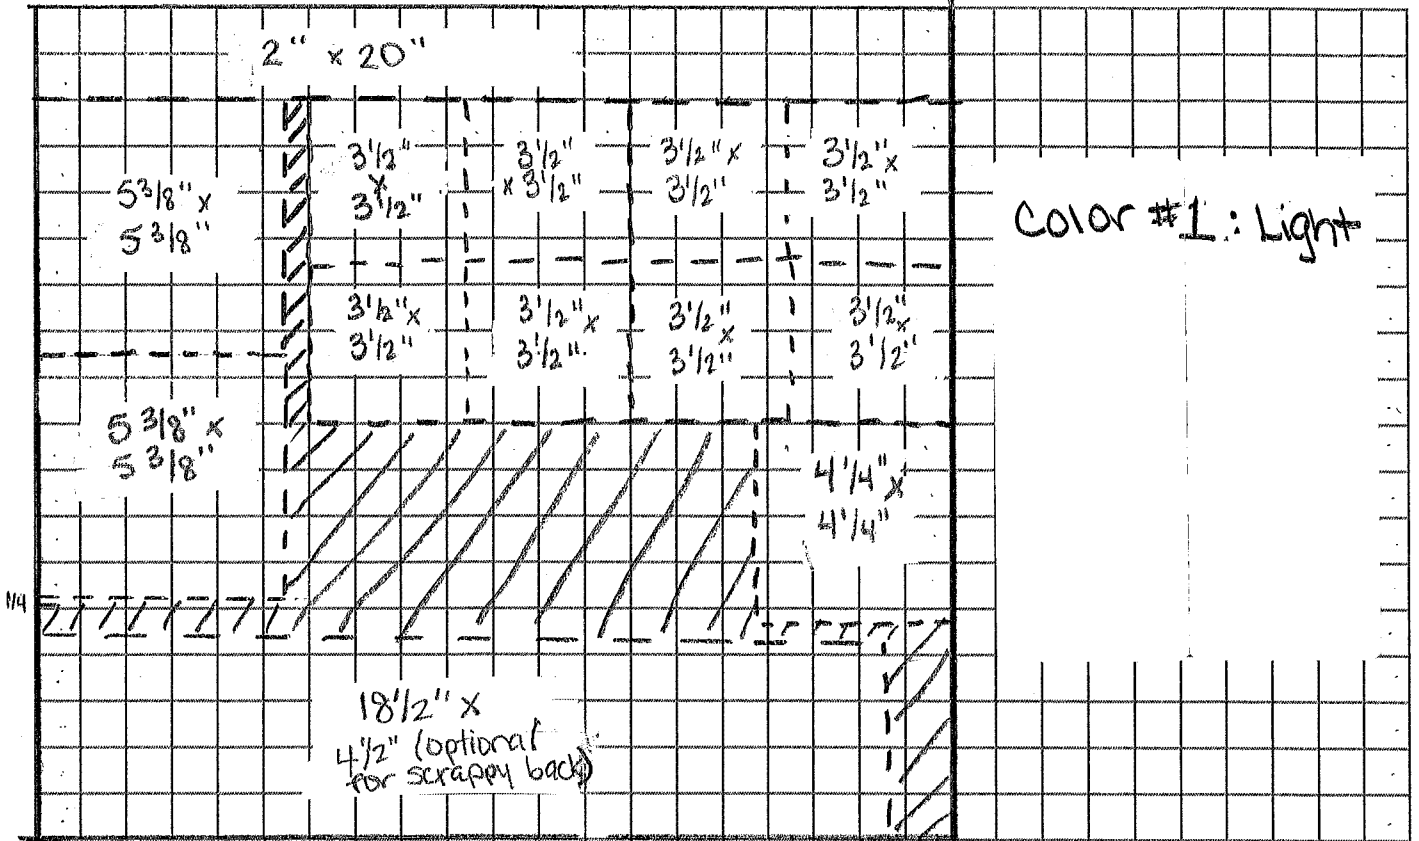 2" x 20"
5 3/8" x
5 3/8"
3 1/2"
x
3 1/2"
3 1/2"
x 3 1/2"
3 1/2" x
3 1/2"
3 1/2" x
3 1/2"
Color #1: Light
3 1/2" x
3 1/2"
3 1/2" x
3 1/2"
3 1/2"
x
3 1/2"
3 1/2"
x
3 1/2"
5 3/8" x
5 3/8"
4 1/4" x
4 1/4"
1/4
18 1/2" x
4 1/2" (optional
for scrappy back)